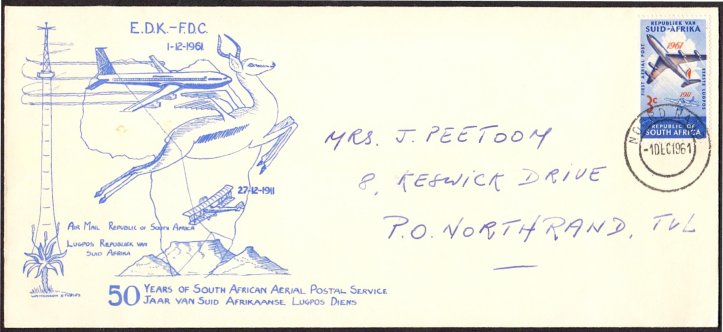 E.D.K.-F.D.C.
1-12-1961
27-12-1911
AIR MAIL REPUBLIC OF SOUTH AFRICA
LUGPOS REPUBLIEK VAN
SUID AFRIKA
50 YEARS OF SOUTH AFRICAN AERIAL POSTAL SERVICE
JAAR VAN SUID AFRIKAANSE LUGPOS DIENS
REPUBLIEK VAN
SUID-AFRIKA
1961
FIRST AERIAL POST
EERSTE LUGPOS
1911
3c
REPUBLIC OF
SOUTH AFRICA
-1DEC1961
MRS. J. PEETOOM
8, KESWICK DRIVE
P.O. NORTHRAND, TVL